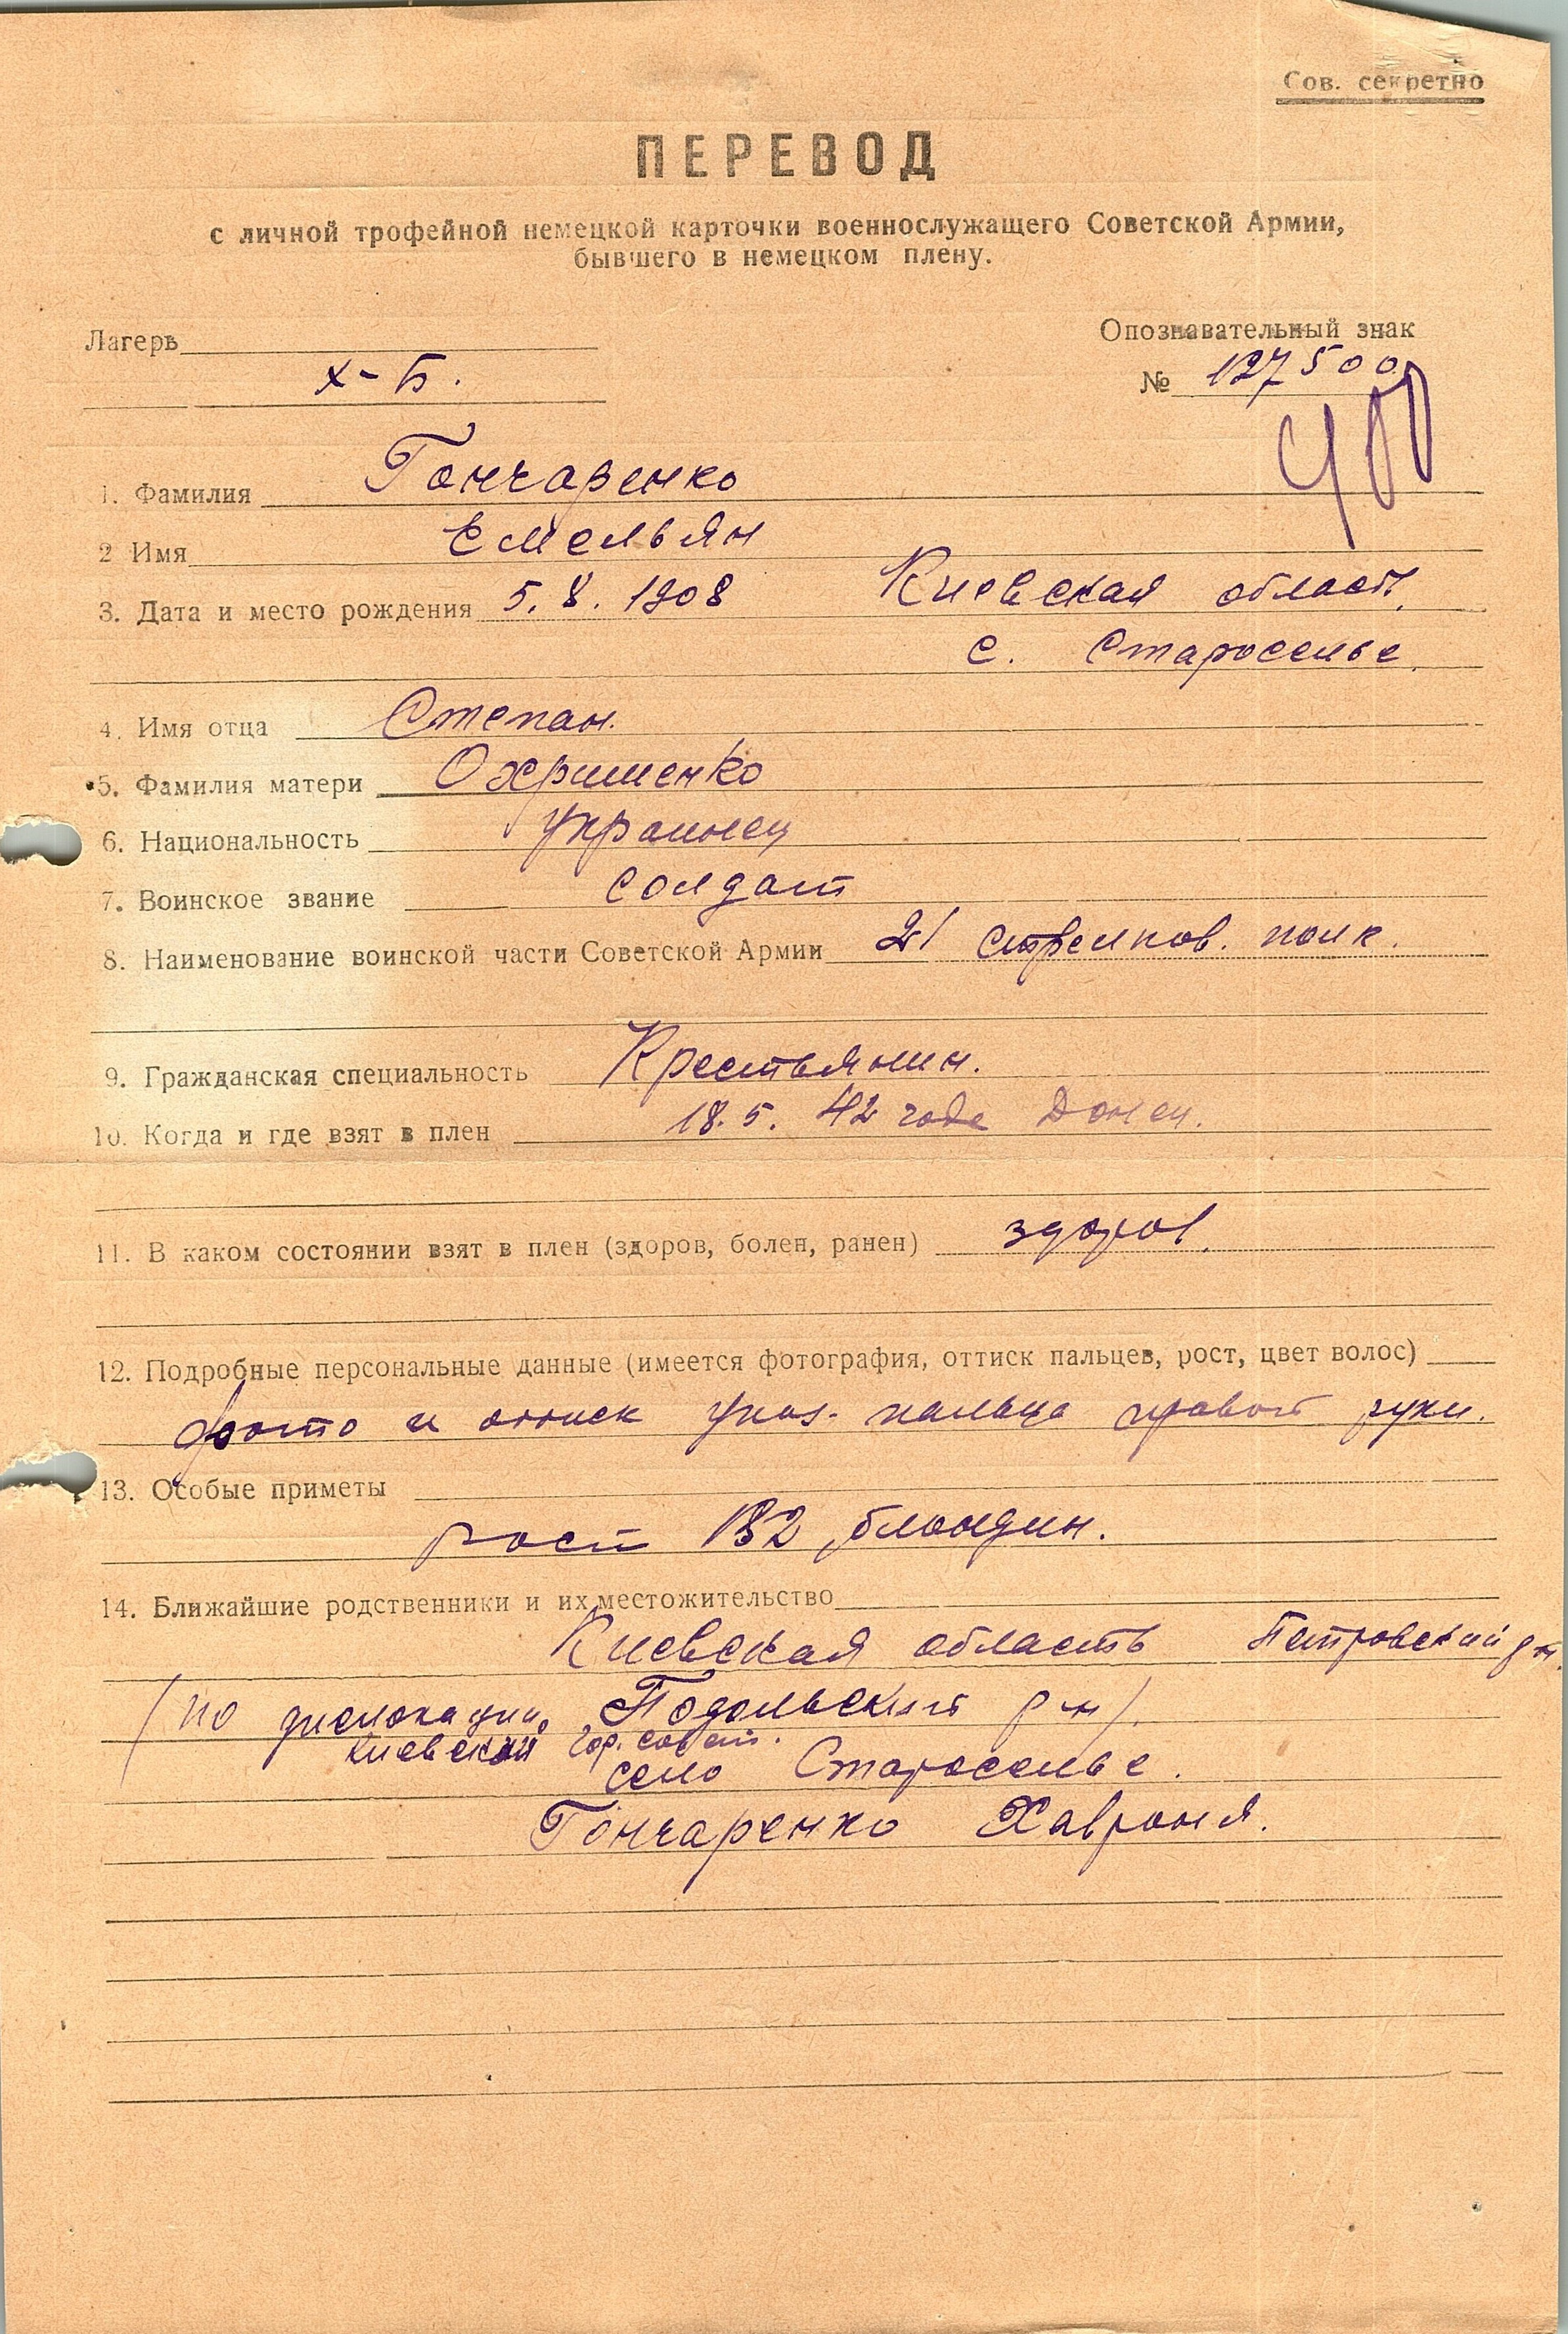 Сов. секретно
ПЕРЕВОД
с личной трофейной немецкой карточки военнослужащего Советской Армии,
бывшего в немецком плену.
Лагерь
Опознавательный знак
X-Б.
№ 127500
400
1. Фамилия Гончаренко
2 Имя Емельян
3. Дата и место рождения 5.8.1908 Киевская област.
с. Староселье.
4. Имя отца Степан.
5. Фамилия матери Охрименко
6. Национальность украинец
7. Воинское звание солдат
8. Наименование воинской части Советской Армии 21 стрелков. полк.
9. Гражданская специальность Крестьянин.
10. Когда и где взят в плен 18.5.42 годе Донец.
11. В каком состоянии взят в плен (здоров, болен, ранен) здоров.
12. Подробные персональные данные (имеется фотография, оттиск пальцев, рост, цвет волос)
фото и оттиск указ. пальца правой руки.
13. Особые приметы
рост 182, блондин.
14. Ближайшие родственники и их местожительство
Киевская область Петровский р-н.
(по дислокации, Подольский р-н).
Киевский гор. совет.
село Староселье.
Гончаренко Хавроня.